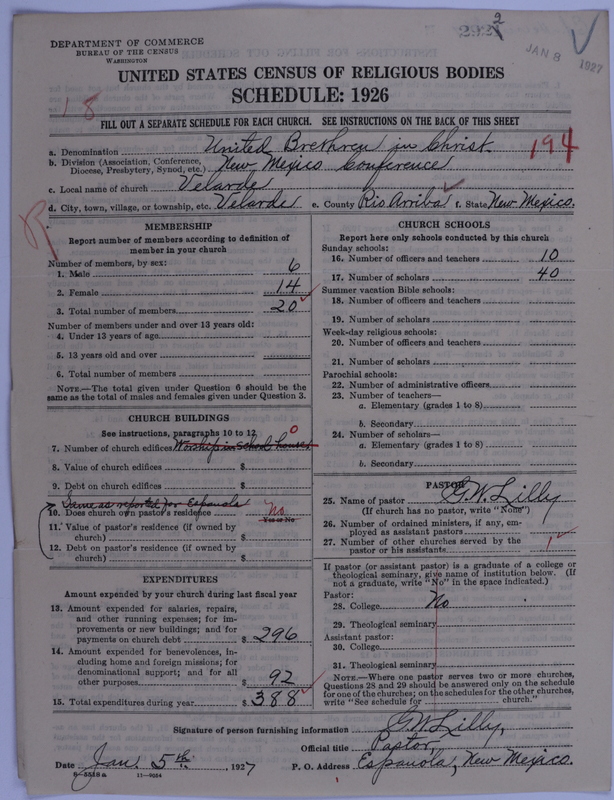 2
JAN 8 1927
DEPARTMENT OF COMMERCE
BUREAU OF THE CENSUS
WASHINGTON
UNITED STATES CENSUS OF RELIGIOUS BODIES
SCHEDULE: 1926
18
FILL OUT A SEPARATE SCHEDULE FOR EACH CHURCH. SEE INSTRUCTIONS ON THE BACK OF THIS SHEET
194
a. Denomination United Brethren in Christ
b. Division (Association, Conference, Diocese, Presbytery, Synod, etc.) New Mexico Conference
c. Local name of church Velarde
d. City, town, village, or township, etc. Velarde e. County Rio Arriba f. State New Mexico.
R
MEMBERSHIP
Report number of members according to definition of
member in your church
Number of members, by sex:
1. Male 6
2. Female 14
3. Total number of members 20
Number of members under and over 13 years old:
4. Under 13 years of age
5. 13 years old and over
6. Total number of members
NOTE.—The total given under Question 6 should be the
same as the total of males and females given under Question 3.
CHURCH BUILDINGS
See instructions, paragraphs 10 to 12
7. Number of church edifices Worship in School house 0
8. Value of church edifices $
9. Debt on church edifices $
Same as reported for Espanola
10. Does church own pastor's residence No
Yes or No
11. Value of pastor's residence (if owned by
church) $
12. Debt on pastor's residence (if owned by
church) $
EXPENDITURES
Amount expended by your church during last fiscal year
13. Amount expended for salaries, repairs,
and other running expenses; for im-
provements or new buildings; and for
payments on church debt $ 296
14. Amount expended for benevolences, in-
cluding home and foreign missions; for
denominational support; and for all
other purposes $ 92
15. Total expenditures during year $ 388
CHURCH SCHOOLS
Report here only schools conducted by this church
Sunday schools:
16. Number of officers and teachers 10
17. Number of scholars 40
Summer vacation Bible schools:
18. Number of officers and teachers
19. Number of scholars
Week-day religious schools:
20. Number of officers and teachers
21. Number of scholars
Parochial schools:
22. Number of administrative officers
23. Number of teachers—
a. Elementary (grades 1 to 8)
b. Secondary
24. Number of scholars—
a. Elementary (grades 1 to 8)
b. Secondary
PASTOR
25. Name of pastor G. W. Lilly
(If church has no pastor, write "None")
26. Number of ordained ministers, if any, em-
ployed as assistant pastors
27. Number of other churches served by the
pastor or his assistants 1
If pastor (or assistant pastor) is a graduate of a college or
theological seminary, give name of institution below. (If
not a graduate, write "No" in the space indicated.)
Pastor:
28. College No
29. Theological seminary
Assistant pastor:
30. College
31. Theological seminary
NOTE.—Where one pastor serves two or more churches,
Questions 28 and 29 should be answered only on the schedule
for one of the churches; on the schedules for the other churches,
write "See schedule for church."
Signature of person furnishing information G. W. Lilly,
Official title Pastor,
Date Jan. 5th, 1927 P. O. Address Espanola, New Mexico.
11—9054